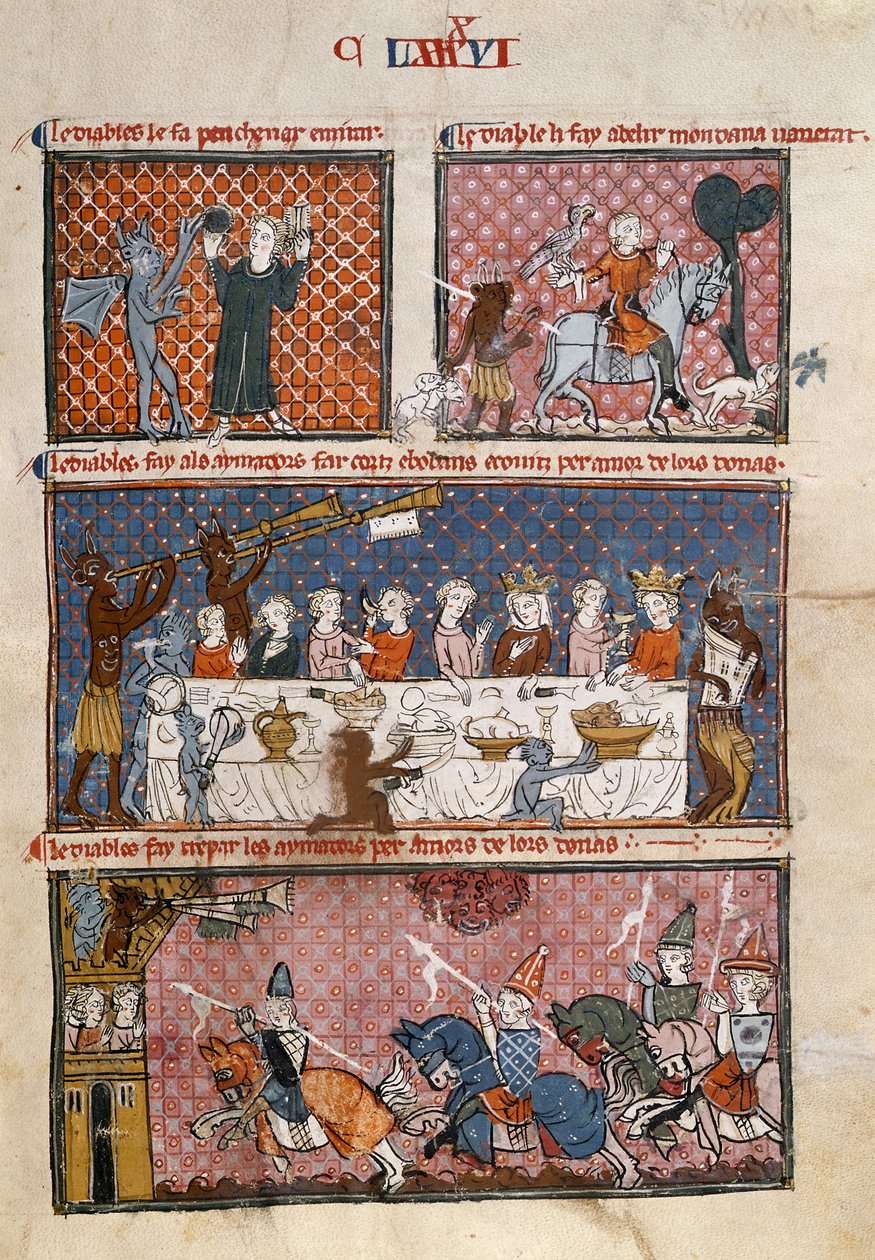 C LXXXXVI
le diables le fa penchenar e mirar.
le diable li fay abelir mondana vanetat.
le diables fay als aymadors far cortz e bobans e covitz per amor de lors donas.
le diables fay trepar les aymadors per amors de lors donas